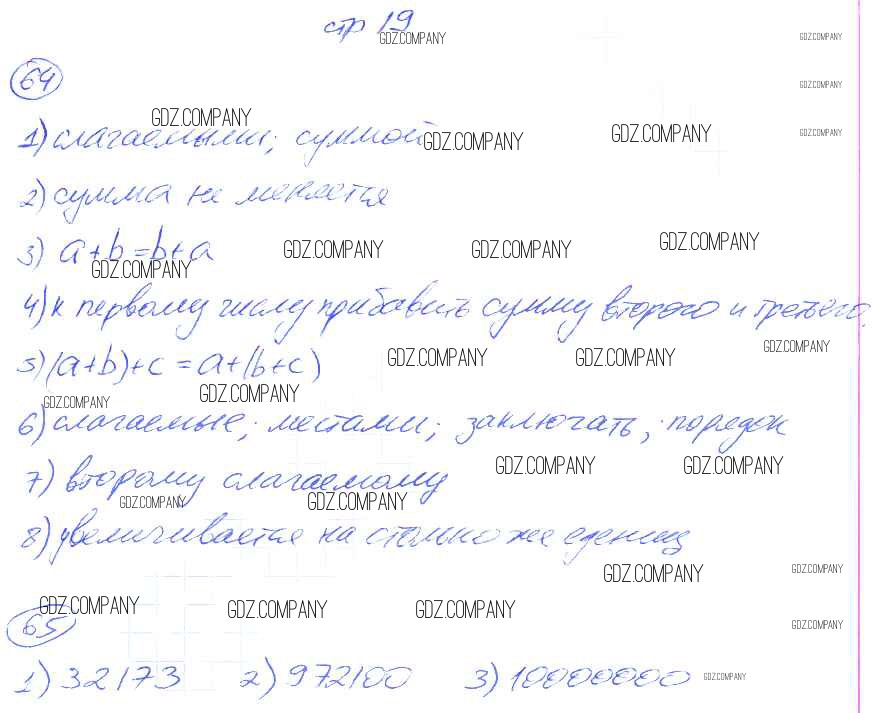 стр 19
GDZ.COMPANY GDZ.COMPANY
64
GDZ.COMPANY
GDZ.COMPANY
1) слагаемыми; суммой
GDZ.COMPANY GDZ.COMPANY GDZ.COMPANY
2) сумма не меняется
3) a+b=b+a
GDZ.COMPANY GDZ.COMPANY GDZ.COMPANY
GDZ.COMPANY
4) к первому числу прибавить сумму второго и третьего.
5) (a+b)+c=a+(b+c)
GDZ.COMPANY GDZ.COMPANY GDZ.COMPANY
GDZ.COMPANY GDZ.COMPANY
6) слагаемые; местами; заключать; порядок
GDZ.COMPANY GDZ.COMPANY
7) второму слагаемому
GDZ.COMPANY GDZ.COMPANY
8) увеличивается на столько же едениц
GDZ.COMPANY GDZ.COMPANY
GDZ.COMPANY GDZ.COMPANY GDZ.COMPANY
65
GDZ.COMPANY
1) 32173 2) 972100 3) 10000000 GDZ.COMPANY